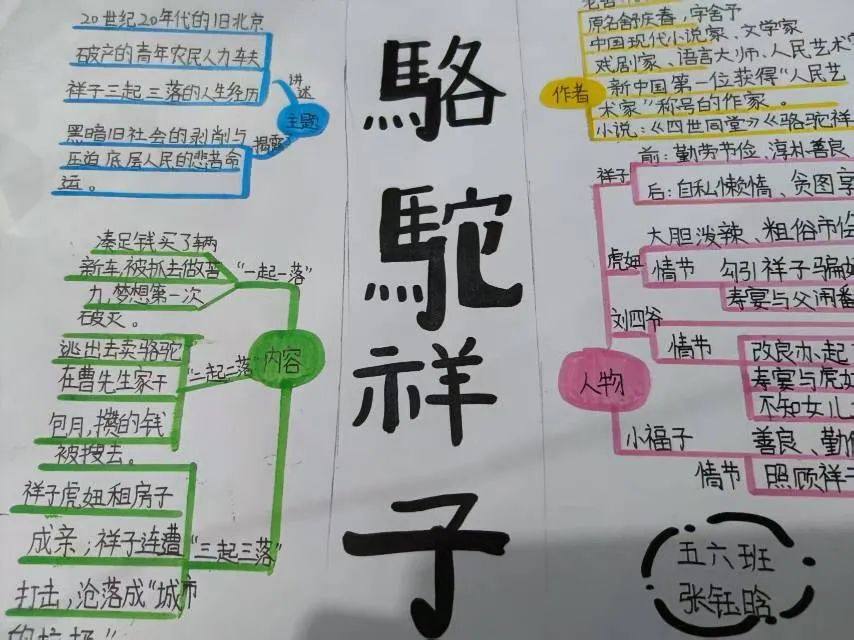 20世纪20年代的旧北京
破产的青年农民人力车夫
祥子三起三落的人生经历
讲述
主题
揭露
黑暗旧社会的剥削与
压迫底层人民的悲苦命
运。
凑足钱买了辆
新车,被抓去做苦
力,梦想第一次
破灭。
"一起一落"
逃出去卖骆驼
在曹先生家干
包月,攒的钱
被搜去。
"二起二落"
内容
祥子虎妞租房子
成亲;祥子连遭
打击,沦落成"城市
"三起三落"
駱
駝
祥
子
原名舒庆春,字舍予
中国现代小说家、文学家
戏剧家、语言大师、人民艺术
新中国第一位获得"人民艺
术家"称号的作家。
小说:《四世同堂》《骆驼祥
作者
祥子
前:勤劳节俭、淳朴善良
后:自私懒惰、贪图享
虎妞
大胆泼辣、粗俗市侩
情节
勾引祥子骗婚
寿宴与父闹翻
刘四爷
情节
改良办、起
寿宴与虎妞
不知女儿
人物
小福子
善良、勤俭
情节
照顾祥子
五六班
张钰晗